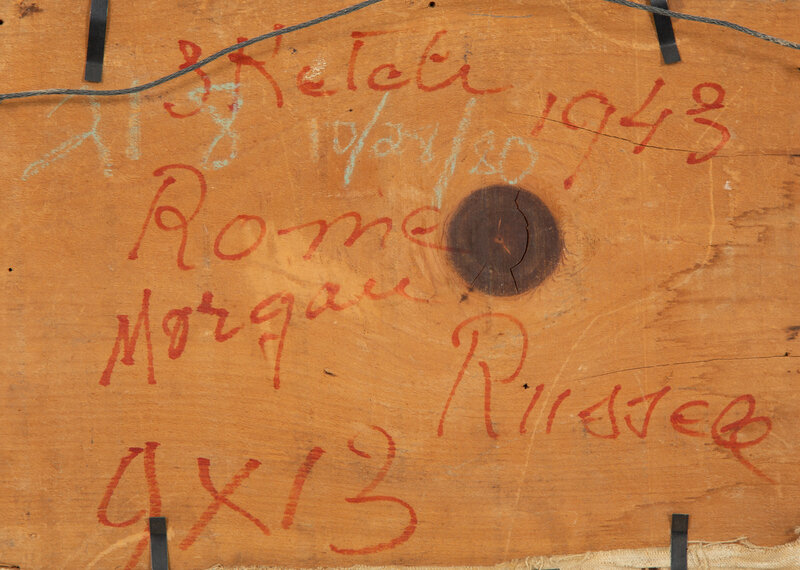 Sketch 1943
218 10/28/80
Rome
Morgan
Russell
9x13